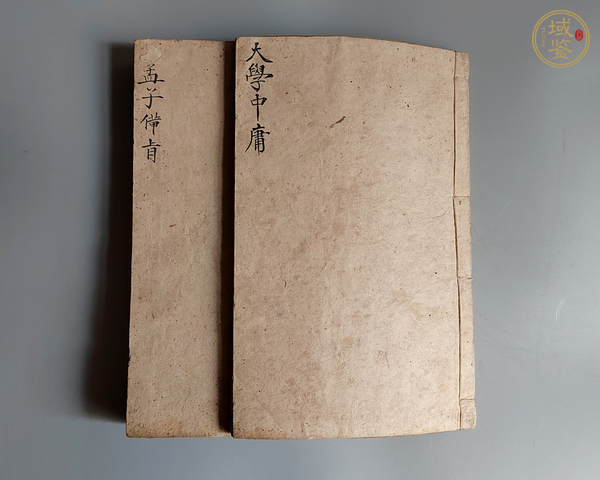 大學中庸
孟子備旨
域鉴